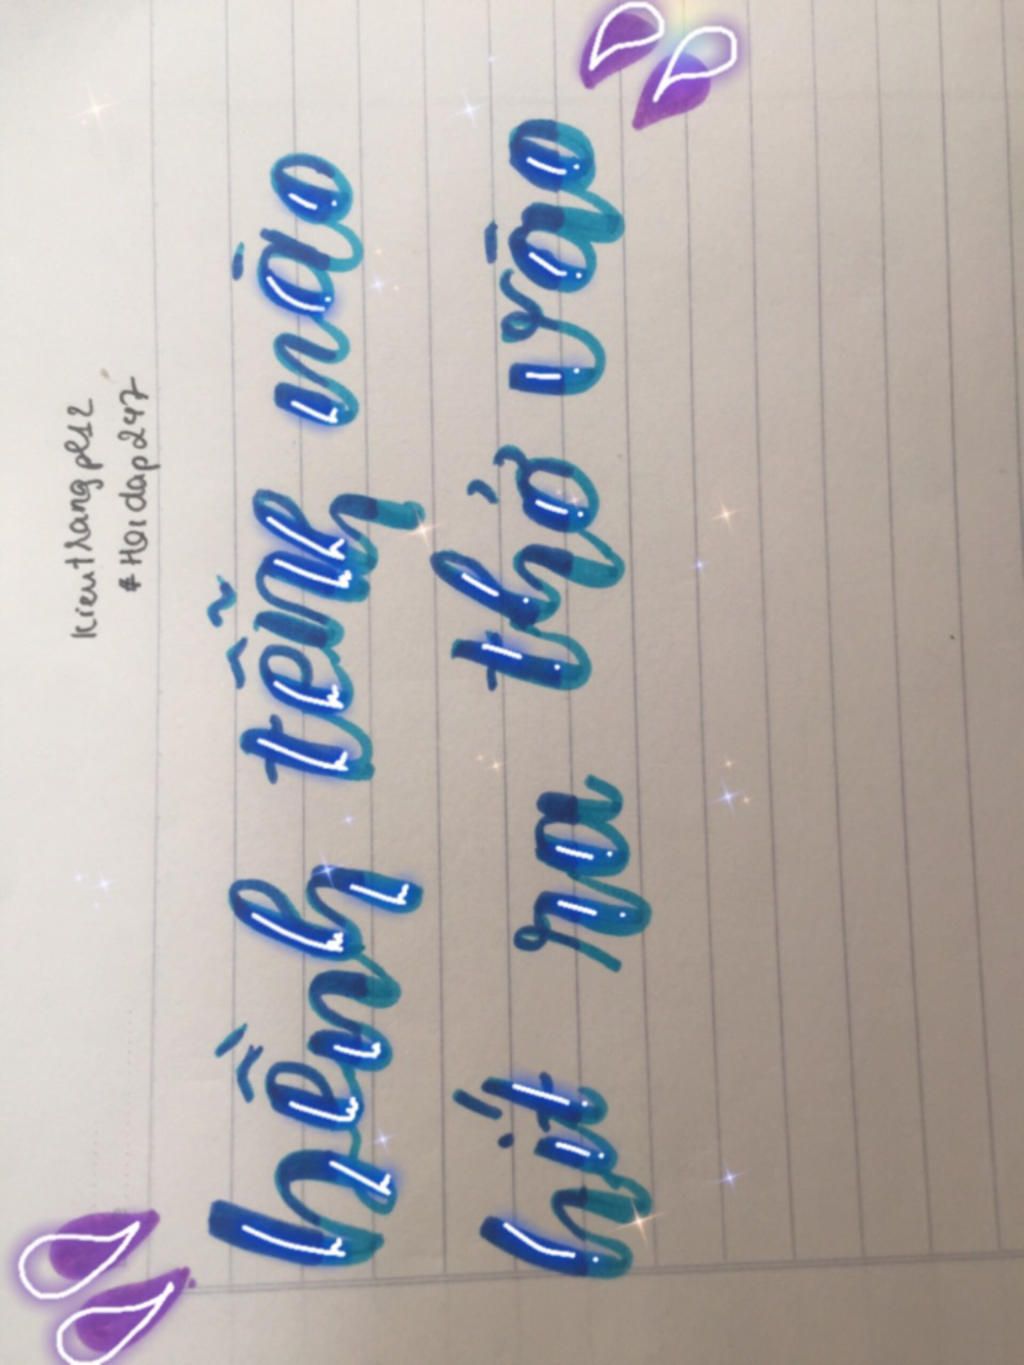 kieuthangpl12
#Hoidap247
hềnh tễnh nào
hít ra thở vào